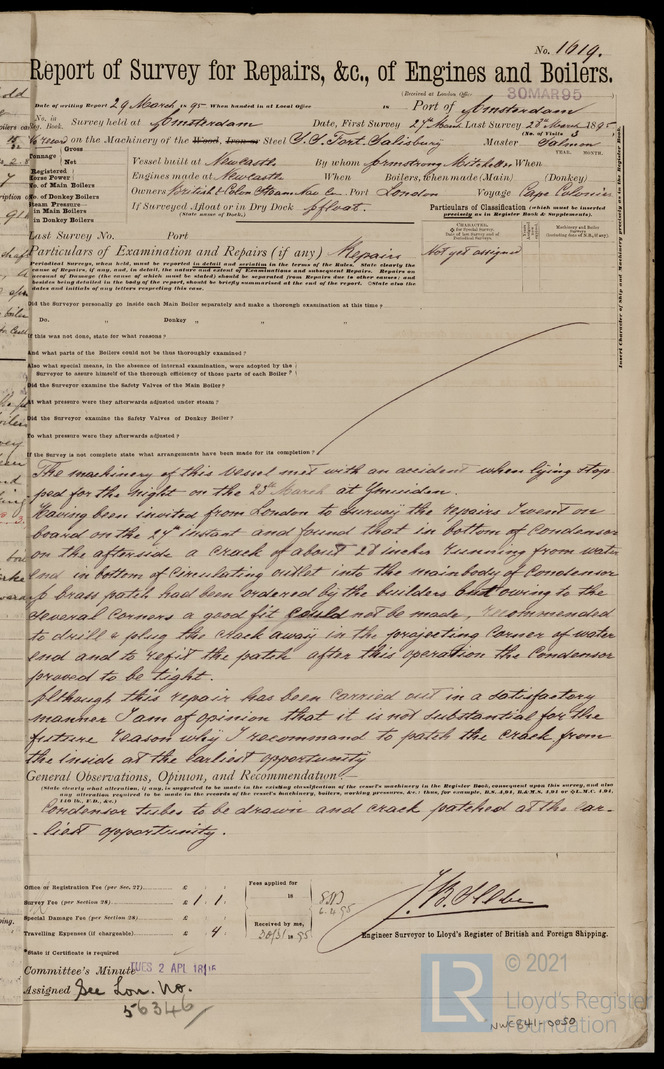 No. 1619.
Report of Survey for Repairs, &c., of Engines and Boilers.
(Received at London Office 30MAR95)
Date of writing Report 29 March 1895 When handed in at Local Office 18 Port of Amsterdam
No. in Reg. Book. Survey held at Amsterdam Date, First Survey 27th March Last Survey 28th March 1895
(No. of Visits 3)
on the Machinery of the Wood, Iron or Steel S.S. Fort Salisbury Master Salmon
Tonnage Gross Net
YEAR. MONTH.
Vessel built at Newcastle By whom Armstrong Mitchell When
Registered Horse Power
Engines made at Newcastle When Boilers, when made (Main) (Donkey)
No. of Main Boilers
No. of Donkey Boilers
Owners British & Colon Steam Nav Co. Port London Voyage Cape Colonies
Steam Pressure in Main Boilers
in Donkey Boilers
If Surveyed Afloat or in Dry Dock Afloat.
(State name of Dock.)
Particulars of Classification (which must be inserted precisely as in Register Book & Supplements).
Last Survey No. Port
Not yet assigned
Particulars of Examination and Repairs (if any) Repairs
Insert Character of Ship and Machinery precisely as in the Register Book.
Did the Surveyor personally go inside each Main Boiler separately and make a thorough examination at this time?
Do. " Donkey " " "
If this was not done, state for what reasons?
And what parts of the Boilers could not be thoroughly examined?
Also what special means, in the absence of internal examination, were adopted by the
Surveyor to assure himself of the thorough efficiency of those parts of each Boiler?
Did the Surveyor examine the Safety Valves of the Main Boiler?
At what pressure were they afterwards adjusted under steam?
Did the Surveyor examine the Safety Valves of Donkey Boiler?
To what pressure were they afterwards adjusted?
If the Survey is not complete state what arrangements have been made for its completion?
The machinery of this vessel met with an accident when lying stop
ped for the night on the 25th March at Ymuiden.
Having been invited from London to survey the repairs I went on
board on the 27th instant and found that in bottom of Condensor
on the afterside a crack of about 28 inches running from water
end in bottom of Circulating outlet into the mainbody of Condensor
A brass patch had been ordered by the builders but owing to the
several corners a good fit could not be made, recommended
to drill & plug the crack away in the projecting corner of water
end and to refit the patch after this operation the Condensor
proved to be tight.
Although this repair has been carried out in a satisfactory
manner I am of opinion that it is not substantial for the
future reason why I recommand to patch the crack from
the inside at the earliest opportunity
General Observations, Opinion, and Recommendation:—
(State clearly what alteration, if any, is suggested to be made in the existing classification of the vessel's machinery in the Register Book, consequent upon this survey, and also
any alteration required to be made in the records of the vessel's machinery, boilers, working pressures, &c.; thus, for example,
Condensor tubes to be drawn and crack patched at the ear-
-liest opportunity.
Office or Registration Fee (per Sec. 27) £
Survey Fee (per Section 28) £ 1 . 1
Special Damage Fee (per Section 28) £
Travelling Expenses (if chargeable) £ 4
Fees applied for
18
Received by me,
30/3/1895
6.4.95
Engineer Surveyor to Lloyd's Register of British and Foreign Shipping.
*State if Certificate is required
Committee's Minute TUES 2 APL 1895
Assigned See Lon. No.
56346
LR © 2021
Lloyd's Register
Foundation
NWC841-0050